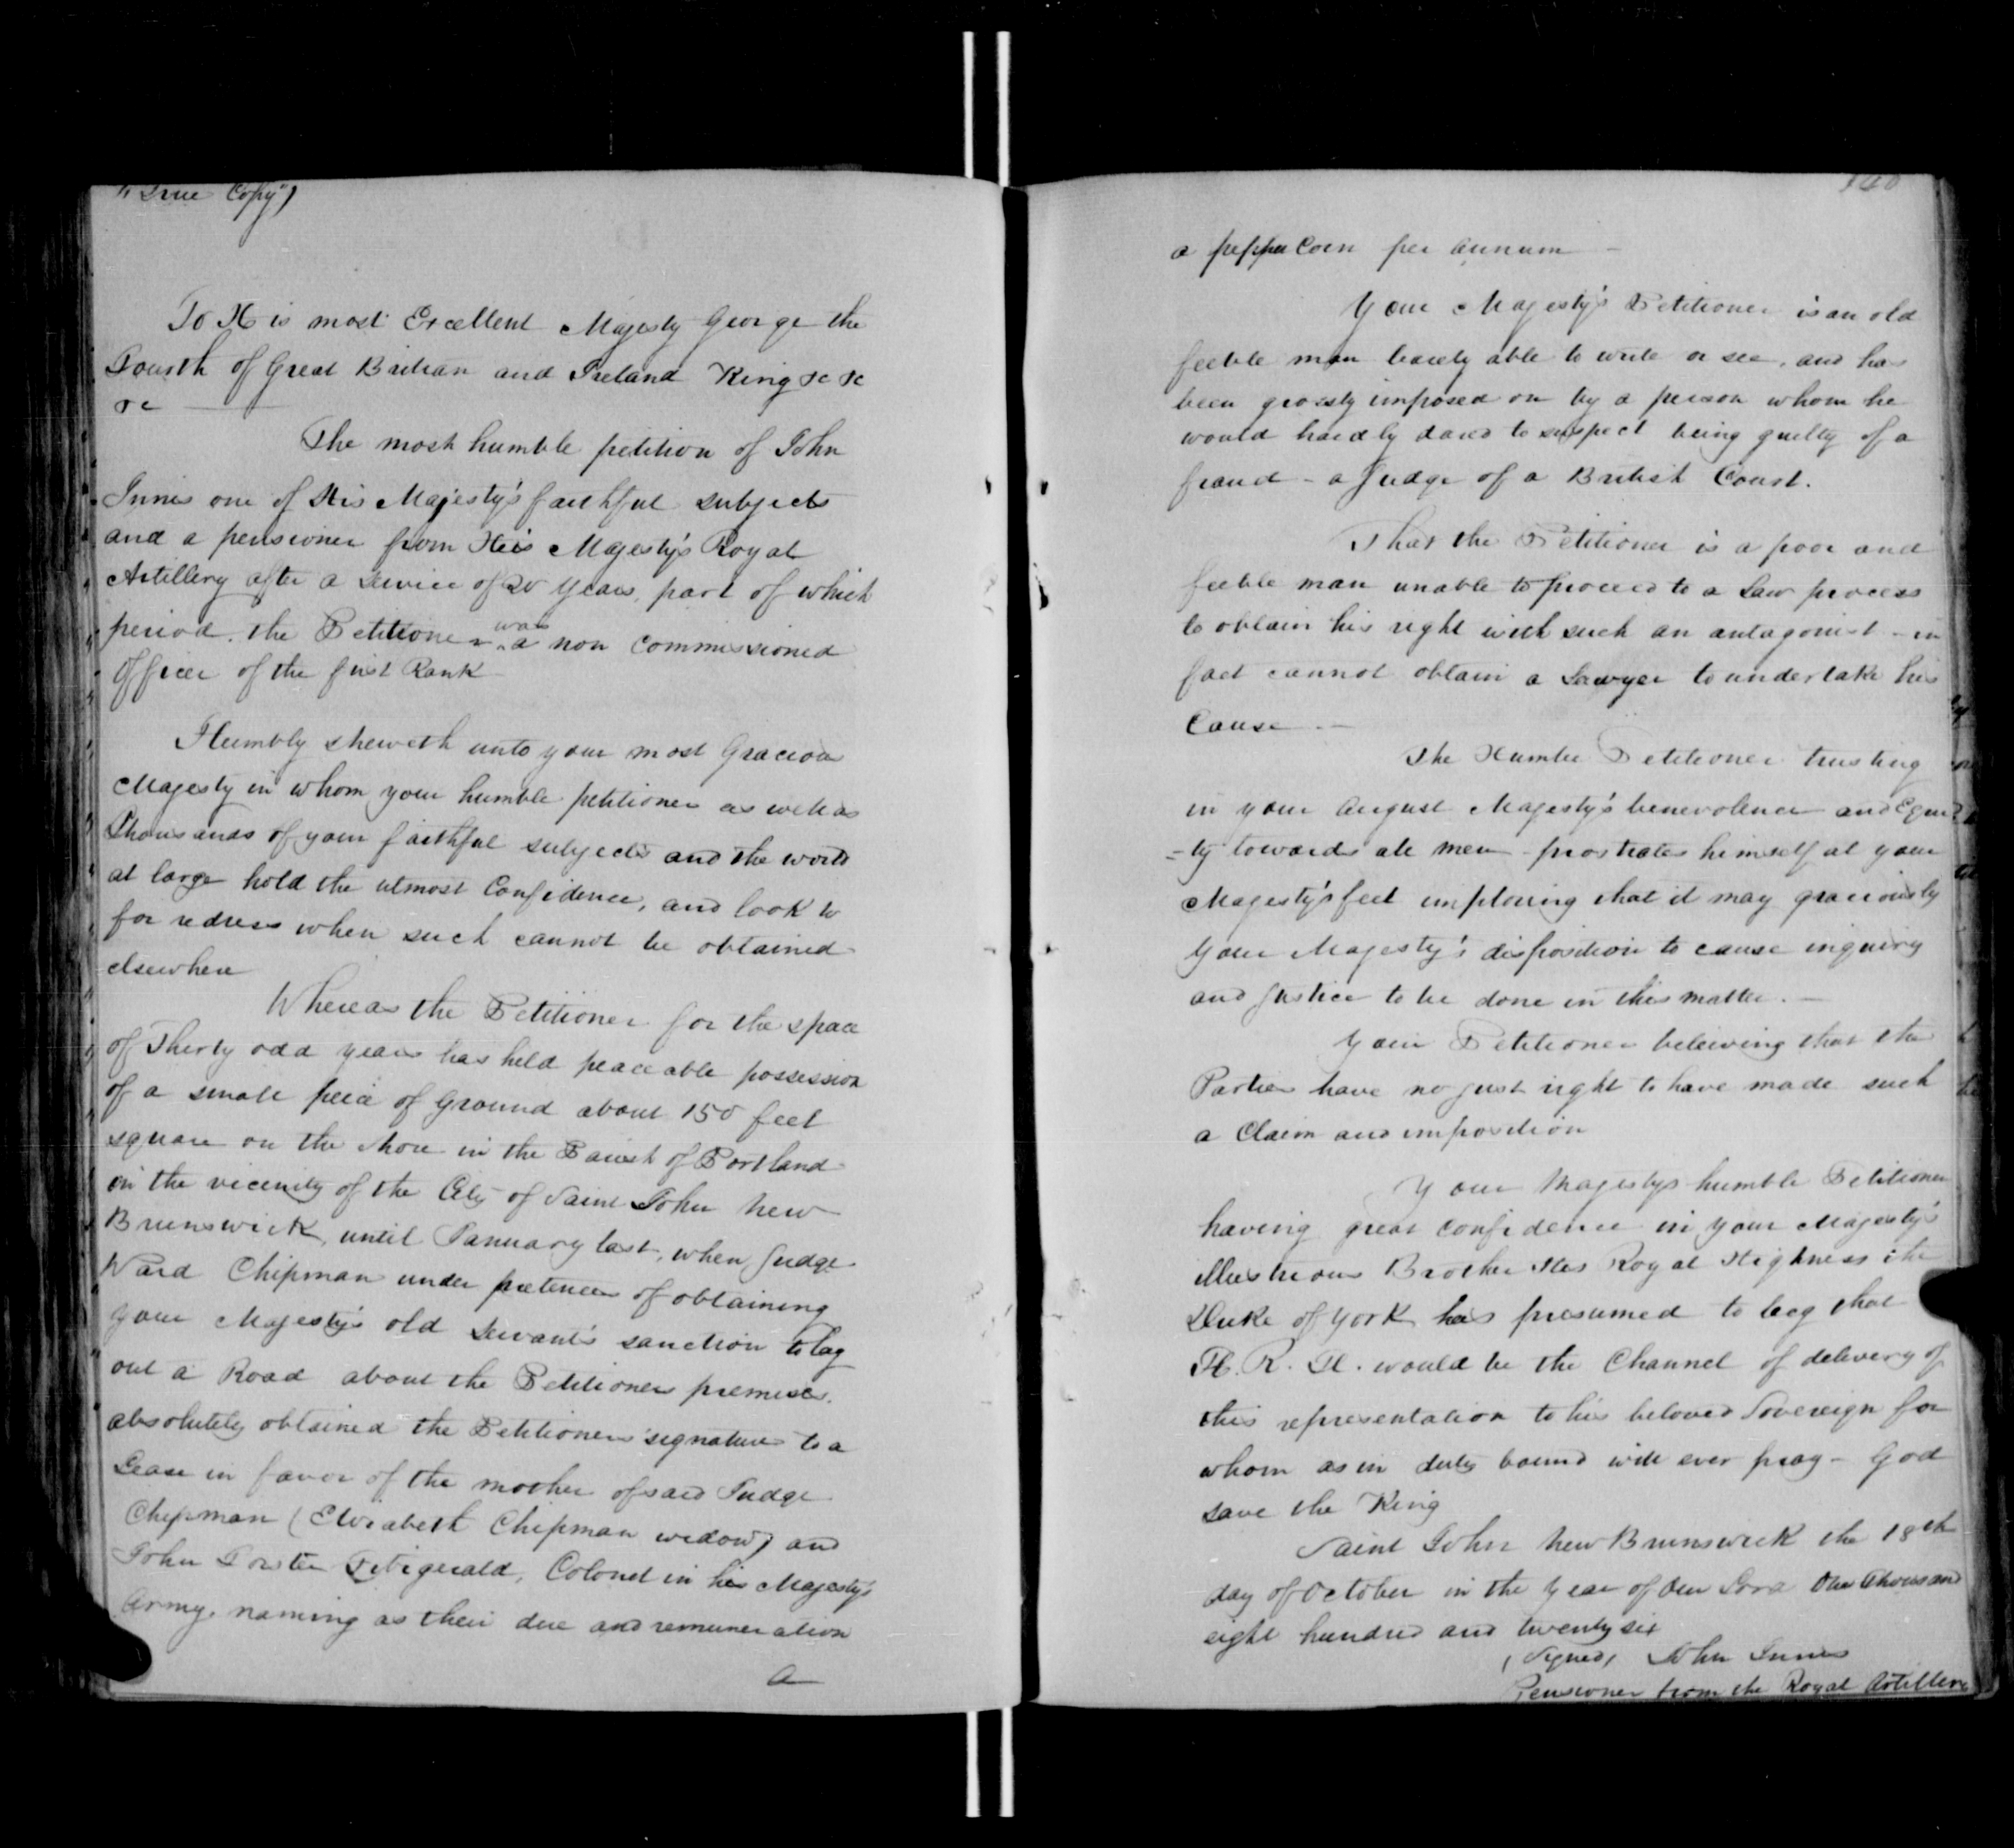 "True Copy")
To His most Excellent Majesty George the
Fourth of Great Britian and Ireland King &c &c
&c
The most humble petition of John
Innis one of His Majesty's faithful subjects
and a pensioner from His Majesty's Royal
Artillery after a Service of 20 Years, part of which
period, the Petitioner was a non Commissioned
Officer of the first Rank
Humbly sheweth unto your most Gracious
Majesty in whom your humble petitioner as well as
Thousands of your faithful subjects and the world
at large hold the utmost Confidence, and look to
for redress when such cannot be obtained
elsewhere
Whereas the Petitioner for the space
of Thirty odd years has held peaceable possession
of a small peice of Ground about 150 feet
square on the shore in the Parish of Portland
in the vicinity of the City of Saint John New
Brunswick, until January last, when Judge
Ward Chipman under pretence of obtaining
your Majesty's old Servant's sanction to lay
out a Road about the Petitioners premises.
absolutely obtained the Petitioners signature to a
Lease in favor of the mother of said Judge
Chipman (Elizabeth Chipman widow) and
John Forster Fitzgerald, Colonel in his Majesty's
Army, naming as their due and remuneration
a
140
a pepper Corn per annum —
Your Majesty's Petitioner is an old
feeble man barely able to write or see, and has
been grossly imposed on by a person whom he
would hardly dared to suspect being guilty of a
fraud - a Judge of a British Court.
That the Petitioner is a poor and
feeble man unable to proceed to a Law process
to obtain his right with such an antagonist - in
fact cannot obtain a Lawyer to undertake his
Cause —
The Humble Petitioner trusting
in your August Majesty's benevolence and Equi
=ty towards all men - prostrates himself at your
Majesty's feet imploring that it may graciously
Your Majesty's disposition to cause inquiry
and Justice to be done in this matter. —
Your Petitioner beleiving that the
Parties have no just right to have made such
a Claim and imposition
Your Majestys humble Petitioner
having great confidence in your Majesty's
illustrious Brother His Royal Highness the
Duke of York has presumed to beg that
H. R. H. would be the Channel of delivery of
this representation to his beloved Sovereign for
whom as in duty bound will ever pray - God
save the King
Saint John New Brunswick the 18th
day of October in the Year of Our Lord One Thousand
eight hundred and twenty six
(Signed) John Innis
Pensioner from the Royal Artillery